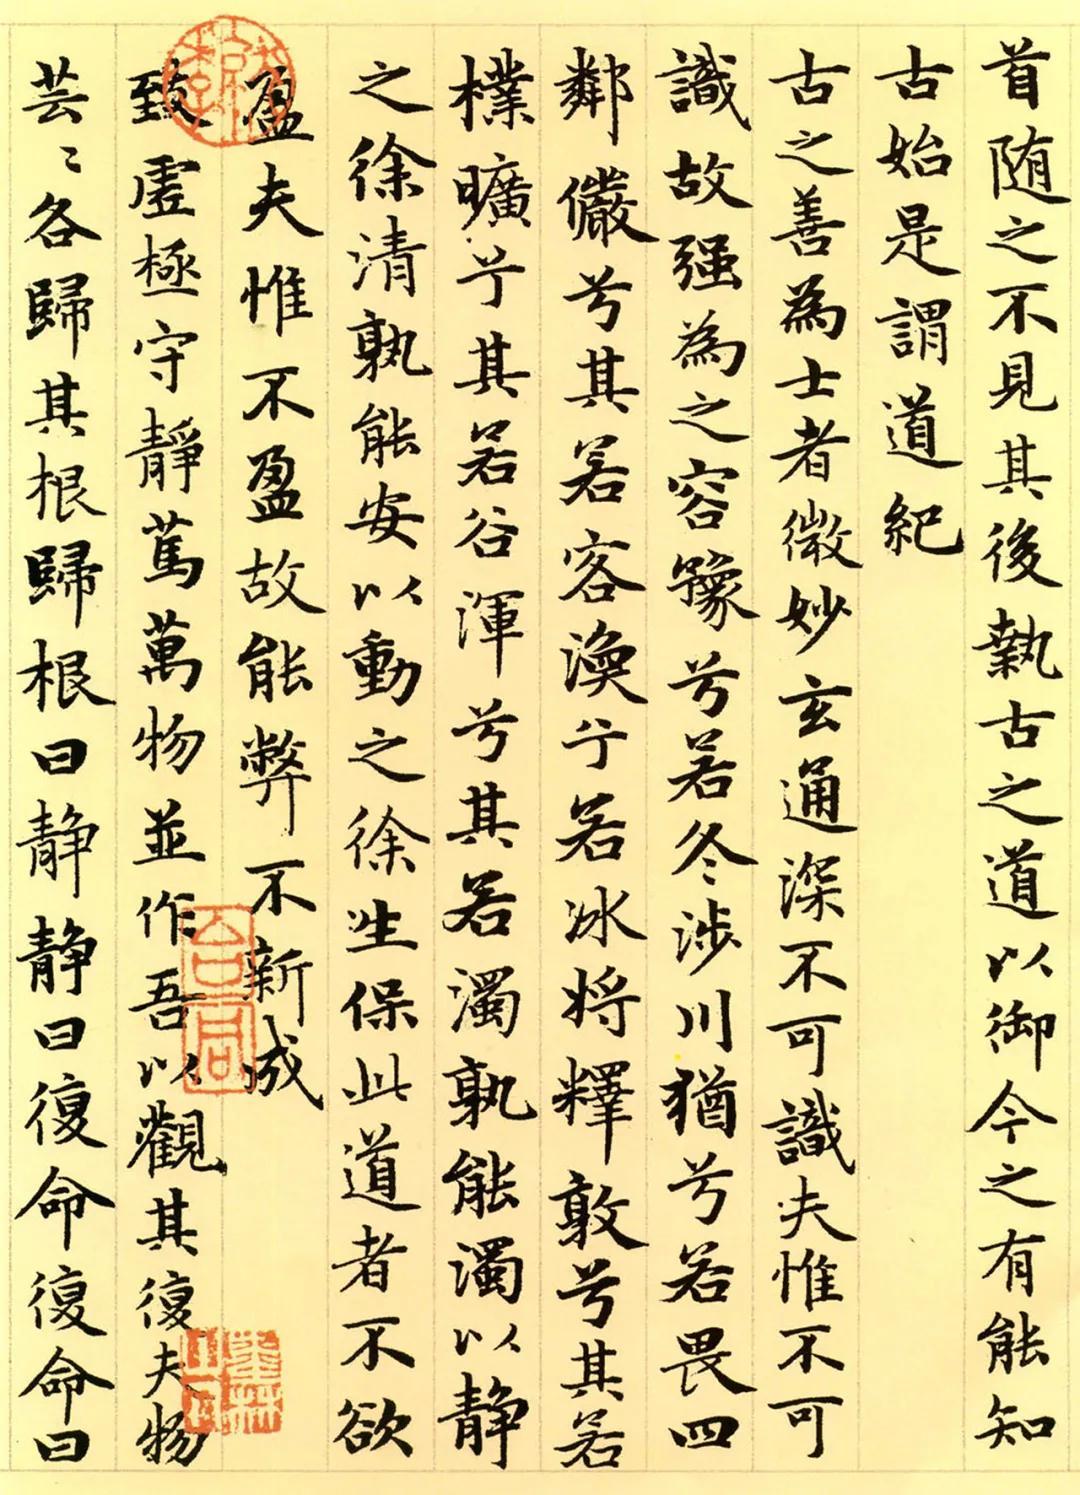 首随之不見其後執古之道以御今之有能知
古始是謂道紀
古之善為士者微妙玄通深不可識夫惟不可
識故强為之容豫兮若冬涉川猶兮若畏四
鄰儼兮其若客渙兮若冰將釋敦兮其若
樸曠兮其若谷渾兮其若濁孰能濁以静
之徐清孰能安以動之徐生保此道者不欲
盈夫惟不盈故能弊不新成
致虛極守靜篤萬物並作吾以觀其復夫物
芸〻各歸其根歸根曰静静曰復命復命曰